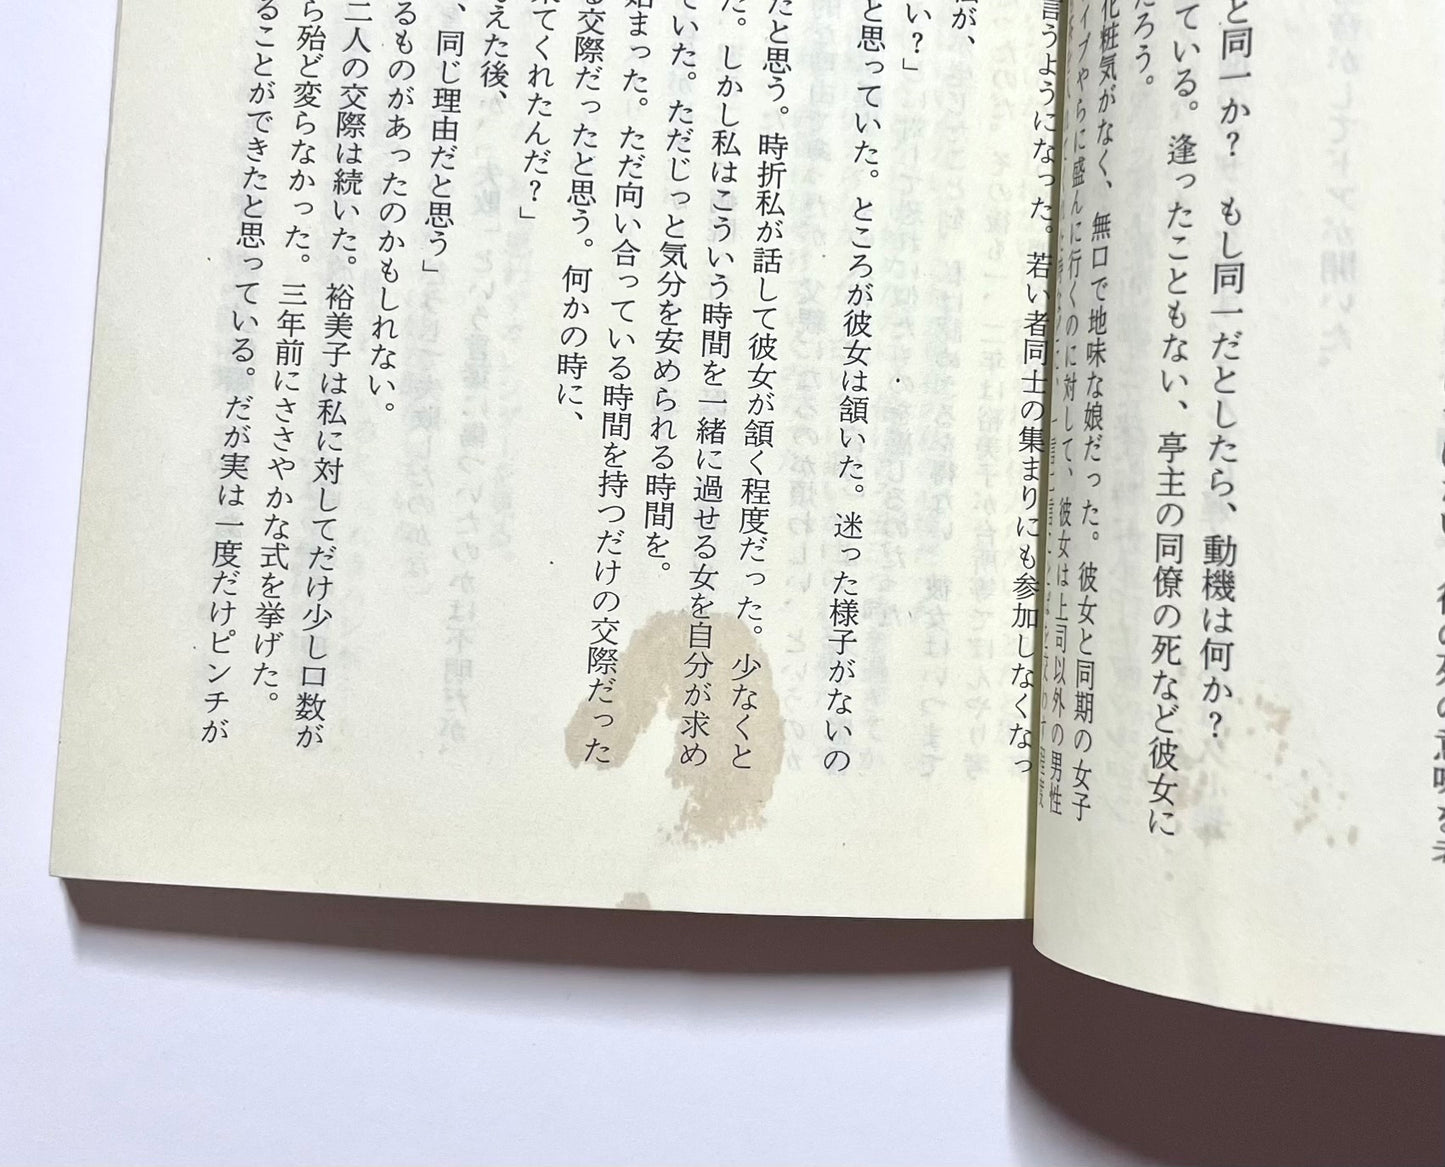 と同一か? もし同一だとしたら、動機は何か?
ている。逢ったこともない、亭主の同僚の死など彼女に
だろう。
化粧気がなく、無口で地味な娘だった。彼女と同期の女子
イブやらに盛んに行くのに対して、彼女は上司以外の男性
言うようになった。若い者同士の集まりにも参加しなくなっ
が、
と思っていた。ところが彼女は頷いた。迷った様子がないの
い?」
たと思う。時折私が話して彼女が頷く程度だった。少なくと
た。しかし私はこういう時間を一緒に過せる女を自分が求め
ていた。ただじっと気分を安められる時間を。
始まった。ただ向い合っている時間を持つだけの交際だった
る交際だったと思う。何かの時に、
来てくれたんだ?」
考えた後、
、同じ理由だと思う」
るものがあったのかもしれない。
二人の交際は続いた。裕美子は私に対してだけ少し口数が
ら殆ど変らなかった。三年前にささやかな式を挙げた。
ることができたと思っている。だが実は一度だけピンチが